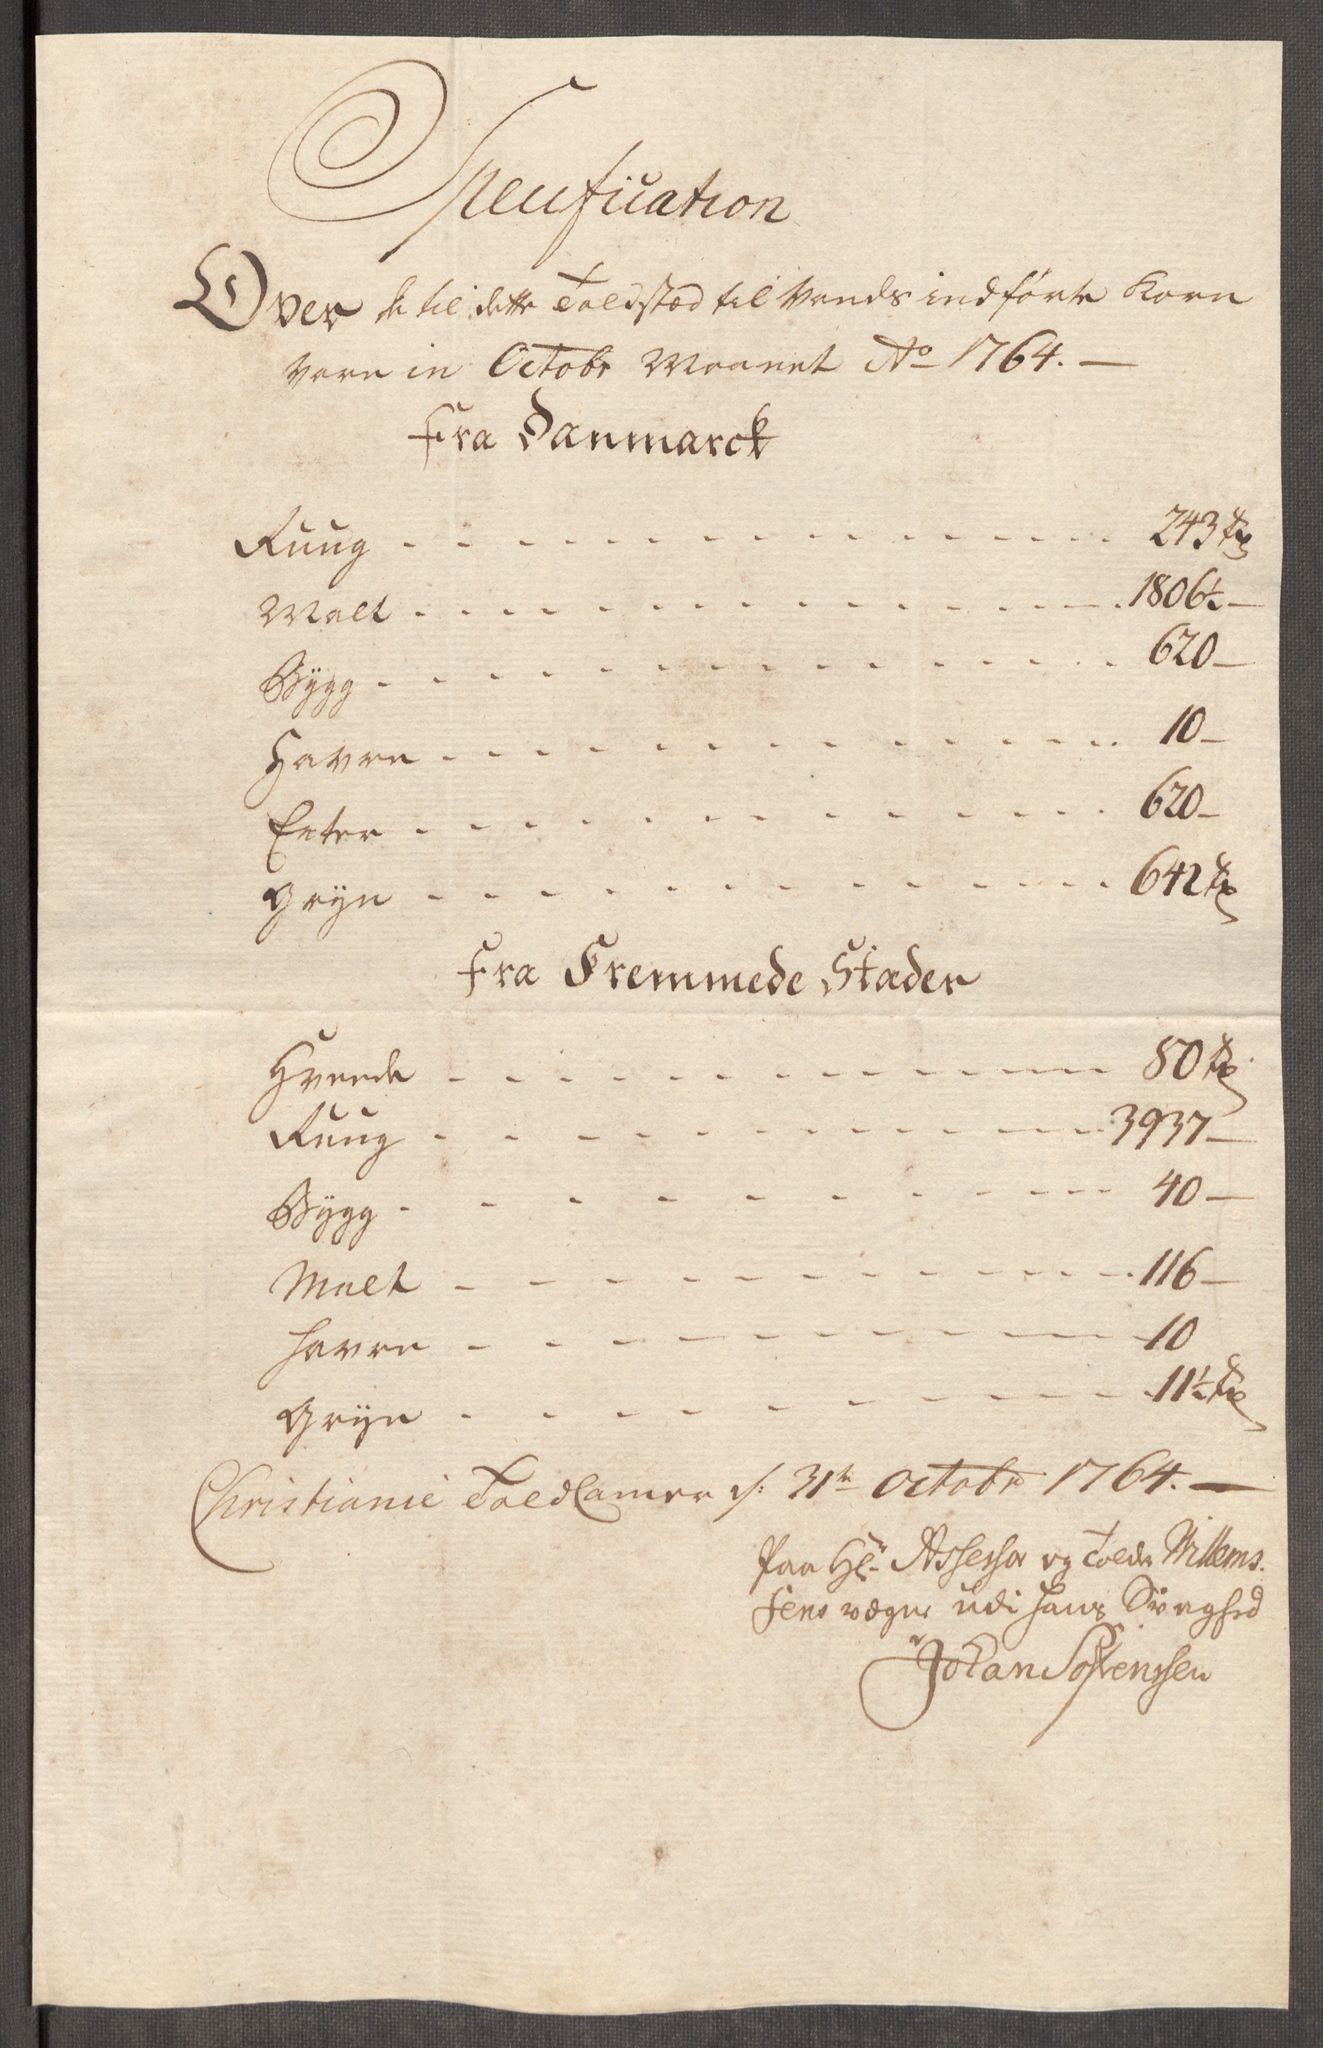 Specification
Over de til dette Toldsted til Vands indførte Korn
Vare in Octobr Maanet Ao 1764. —
Fra Danmarck
Ruug - - - 243 Tr
Malt - - - 1806½ —
Bÿgg - - - 620 —
Havre - - - 10 —
Erter - - - 620 —
Grÿn - - - 642 Tr
Fra Fremmede Stæder
Hvede - - - 80 Tr
Ruug - - - 3937 —
Bÿgg - - - 40 —
Malt - - - 116 —
Havre - - - 10
Grÿn - - - 11½ Tr
Christianie Told Camer d: 31te Octobr 1764. —
Paa Hr Assessor og Tolder Willems.
sens vegne udi hans Svaghed
Johan Sørenssen